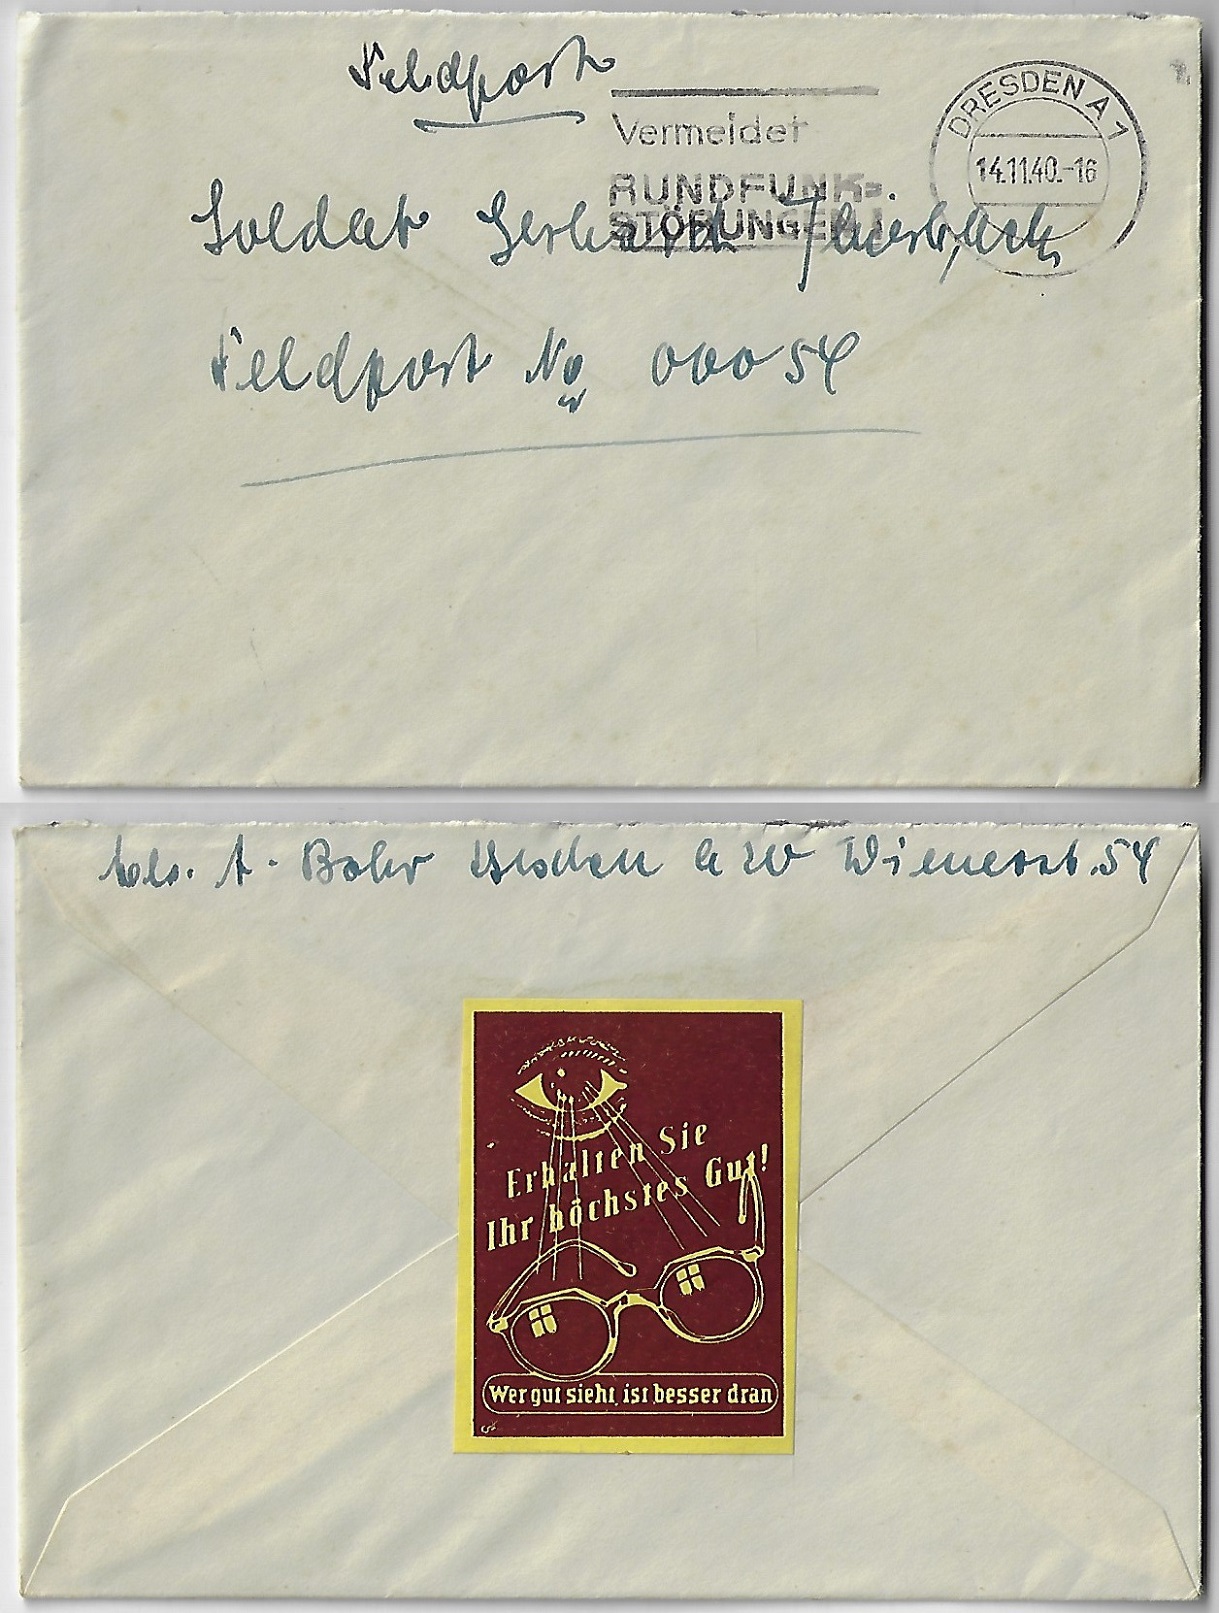 Feldpost
Vermeidet
RUNDFUNK=
STÖRUNGEN!
DRESDEN A 1
14.11.40.-16
Soldat Gerhard
Feldpost No 00054
Abs. A. Bohr Dresden A 20 Wienerst. 54
Erhalten Sie
Ihr höchstes Gut!
Wer gut sieht, ist besser dran